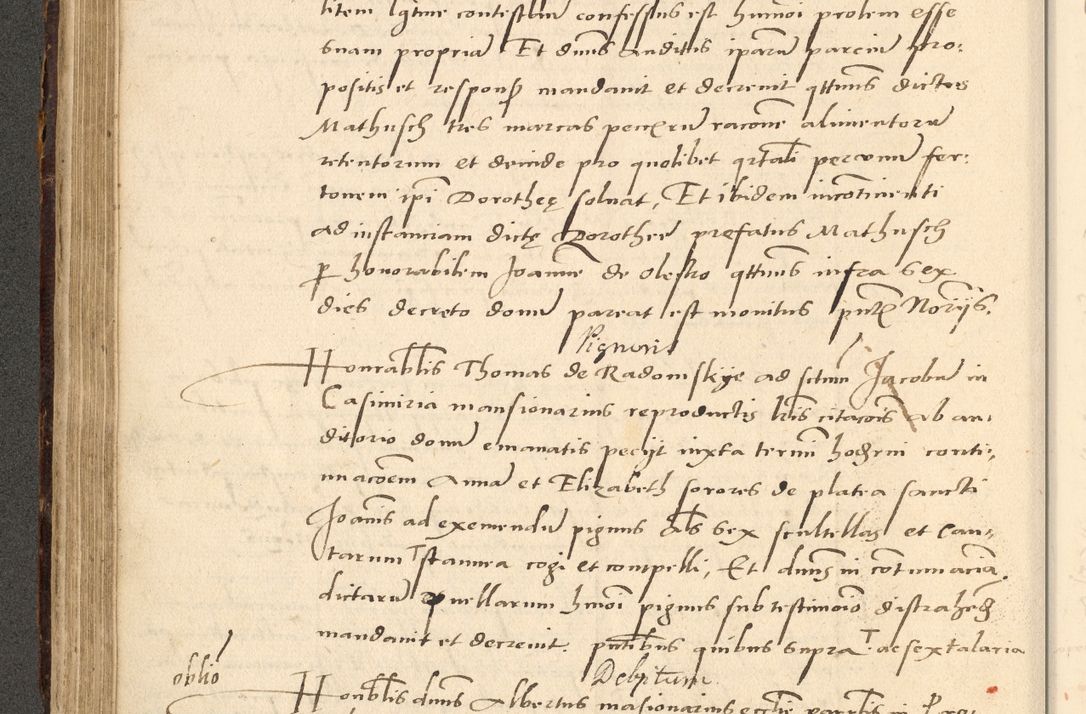 litem legitime contestam confessus est huiusmodi prolem esse
suam propriam Et dnus auditis ipararum parcium pro:
positis et respons mandavit et decrevit qtinus dictus
Mathusch tres marcas peccrum racone alimentorum
retentorum et deinde pro quolibet qrtali percum fer:
tonem ipi Dorotheę solvat, Et ibidem incontinenti
ad instanciam dictę Dorothee prefatus Mathusch
per honorabilem Joannem de Olesko qttinus infra sex
dies decreto domini pareat est monitus pntibus Norijs.
Pignoris
Honorablis Thomas de Radomskije ad sctum Jacobum in
Casimiria mansionarius reproductis lris citacois ab au:
ditorio domini emanatis pecijt iuxta termini hodierni conti:
nuacoem Annam et Elizabeth sorores de platea sancti
Joanis ad exemendum pignus als sex scultellas et can:
tarum stannea cogi et compelli, Et dnus in contumaciam
dictarum puellarum hmoi pignus sub testimoio distrahend
mandavit et decrevit. pntibus quibus supra T. ac sex talaria
oblio
Debitum
Honblis dnus Albertus masionarius ecclie